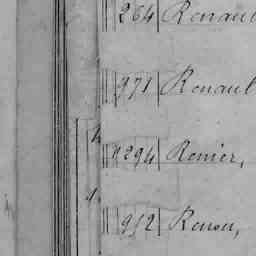 264 Renaul
971 Renaul
1294 Renier,
912 Renou,